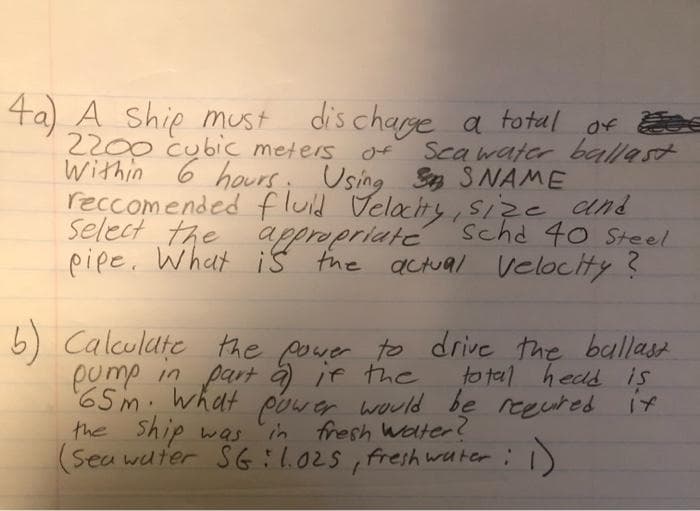 4a) A Ship must discharge a total of
2200 cubic meters of Seawater ballast
Within 6 hours. Using SNAME
reccomended fluid Velocity, size and
Select the appropriate Schd 40 Steel
pipe. What is the actual velocity?
b) Calculate the power to drive the ballast
pump in part a) if the total head is
65m. What power would be required if
the ship was in fresh water?
(Sea water SG: 1.025, freshwater: 1)